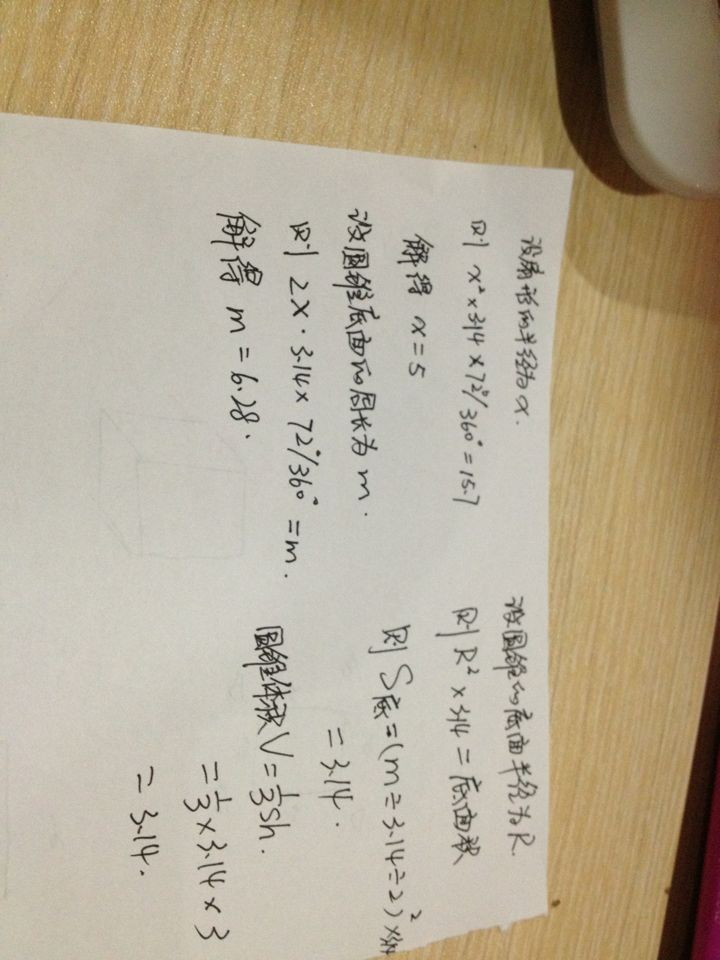 设扇形的半径为x.
则 x²×3.14×72°/360°=15.7
解得 x=5
设圆锥底面的周长为m.
则 2x·3.14×72°/360°=m.
解得 m=6.28.
设圆锥的底面半径为R.
则 R²×3.14=底面积
则 S底=(m÷3.14÷2)²×3.14
=3.14.
圆锥体积V=⅓sh.
=⅓×3.14×3
=3.14.